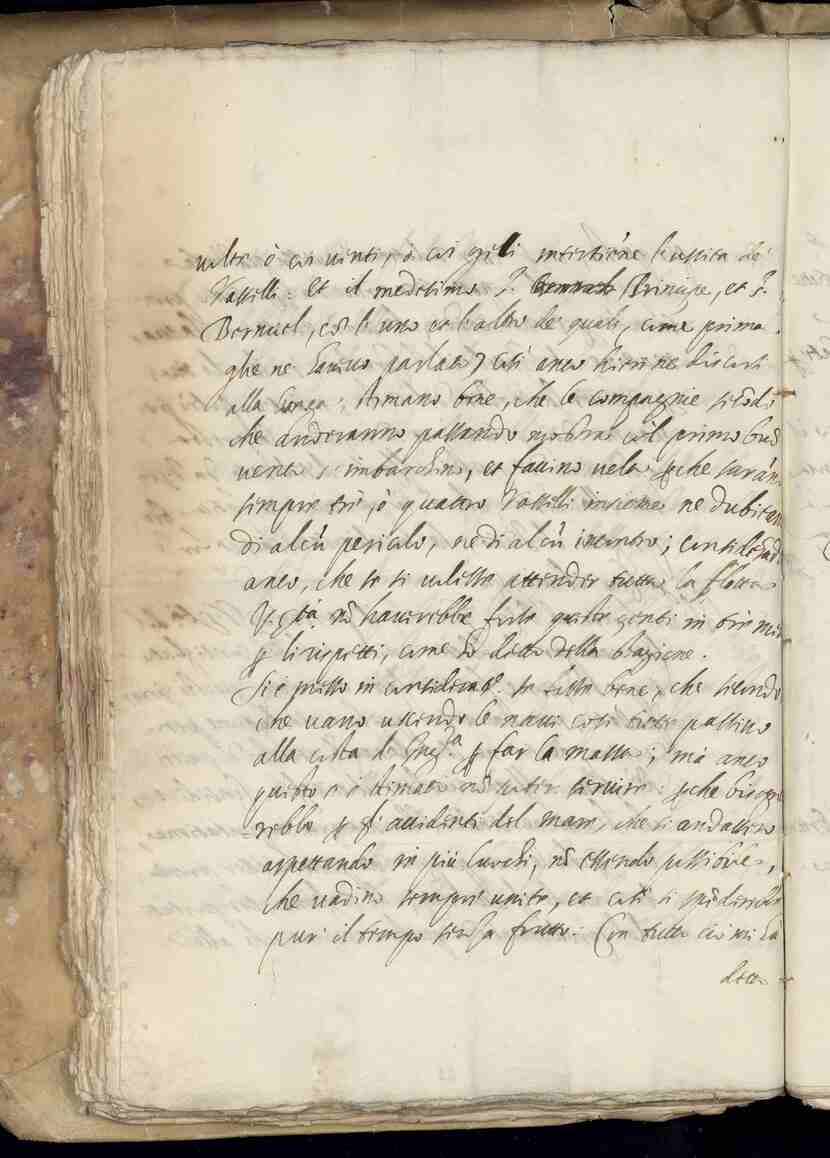 volte ò coi venti, ò coi geli intertiene l'uscita de'
Vasselli: Et il medesimo s.r Principe, et s.r
Bernuel, con l'uno et l'altro de' quali, come prima
ghe ne havevo parlato, così anco hieri ne discorsi
alla longa; stimano bene, che le compagnie secondo
che anderanno passando mostra col primo buon
vento s'imbarchino, et faccino vela perche saran
sempre trè, ò quattro Vasselli insieme ne dubitan
di alcun pericolo, ne di alcun incontro; considerando
anco, che se si volesse attender tutta la flotta
V. S.tà non haverebbe forse queste genti in
per li rispetti, come hò detto della stagione.
Si è posto in consideratne. se fosse bene, che secondo
che vano uscendo le navi così tutte passino
alla costa d'Ingh.ra per far la massa; mà anco
questo s'è stimato non poter servire: perche bisogne
=rebbe per gl'accidenti del mare, che si andassero
aspettando in più luochi, non essendo possibile,
che vadino sempre unite, et così si spenderebbe
pur il tempo senza frutto: Con tutto ciò mi ha
detto